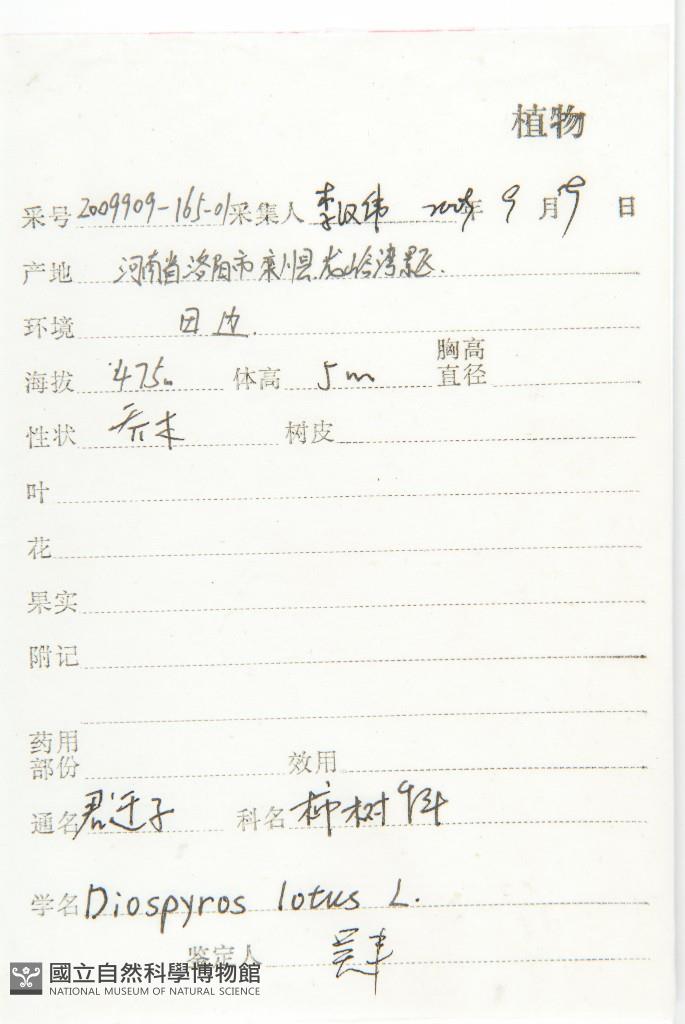 植物
采号 2009909-165-01 采集人 李汉伟 2009年 9 月 9 日
产地 河南省洛阳市栾川县龙峪湾景区.
环境 田边.
海拔 475m 体高 5m 胸高直径
性状 乔木 树皮
叶
花
果实
附记
药用部份 效用
通名 君迁子 科名 柿树科
学名 Diospyros lotus L.
鉴定人
國立自然科學博物館
NATIONAL MUSEUM OF NATURAL SCIENCE